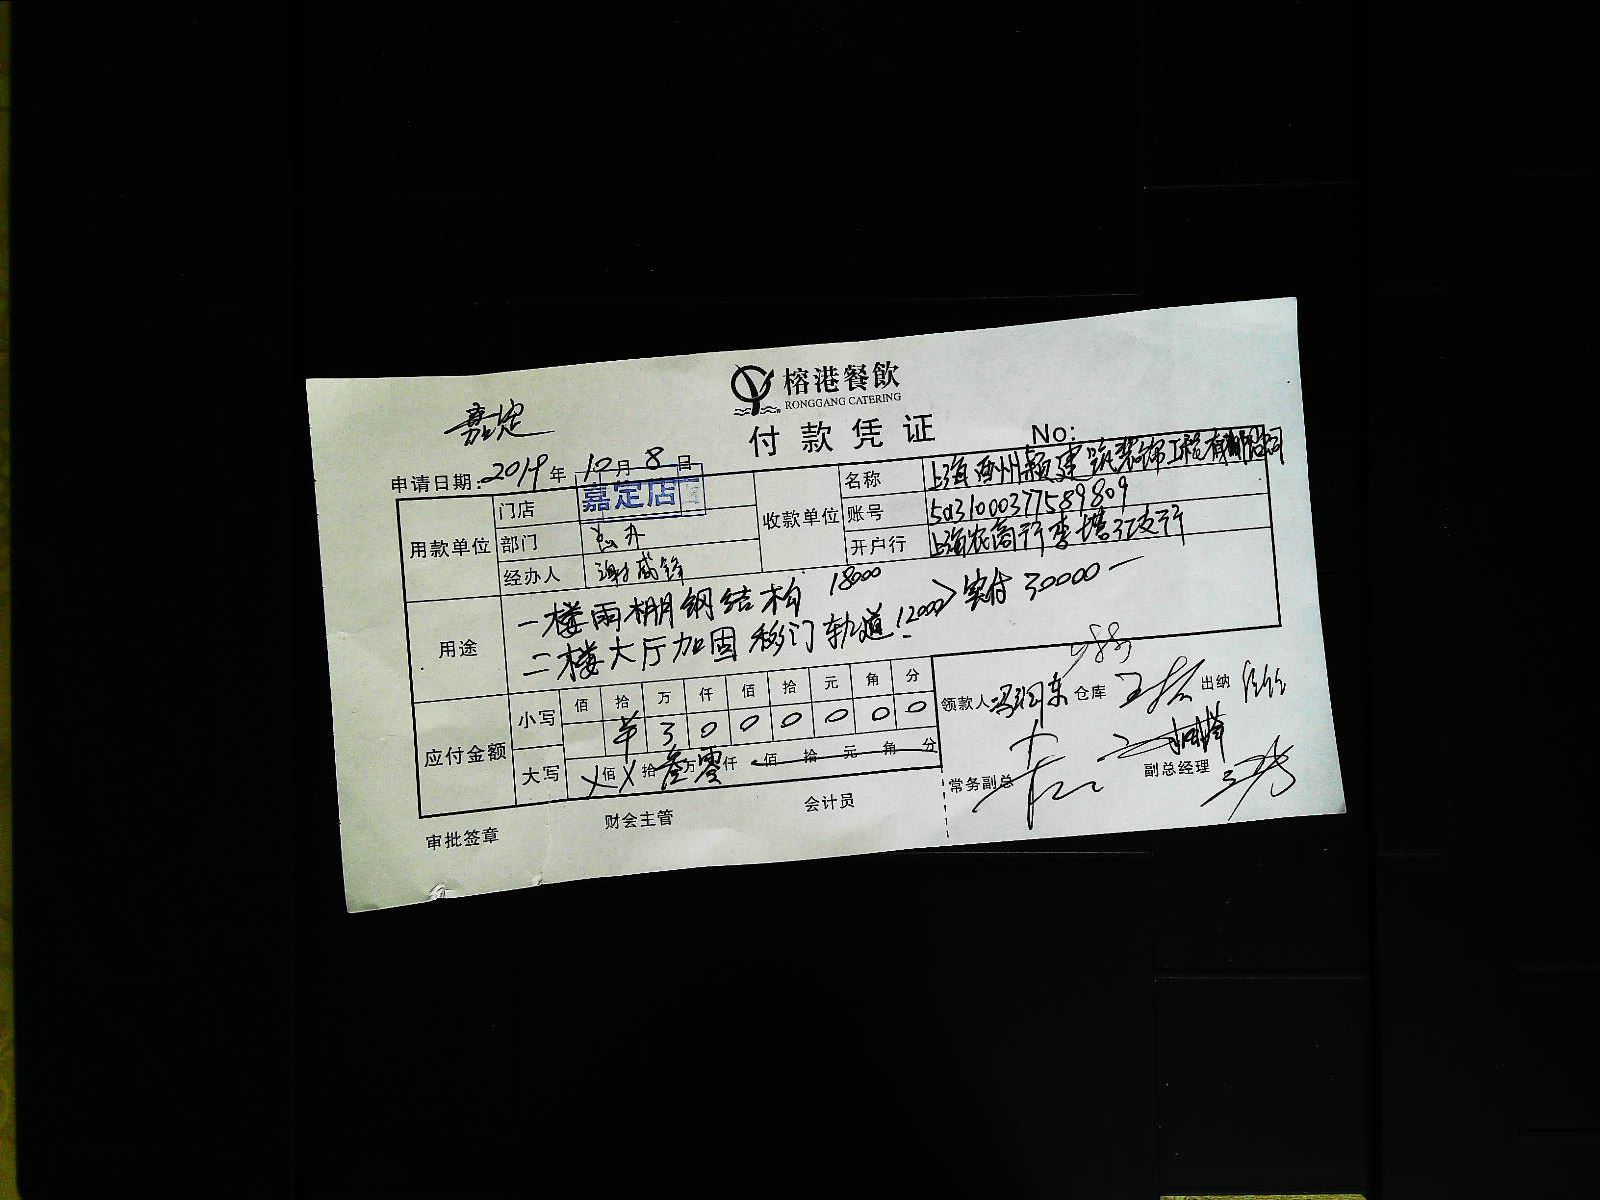 榕港餐飲
RONGGANG CATERING
嘉定
付款凭证 No:
申请日期: 2019年10月8日
用款单位 门店 嘉定店
部门 总办
经办人 谢威锋
收款单位 名称 上海酉州颖建筑装饰工程有限公司
账号 50131000377589809
开户行 上海农商行李塔汇支行
用途 一楼雨棚钢结构 18000
二楼大厅加固移门轨道 12000 > 实付 30000一
应付金额 小写 佰 拾 万 仟 佰 拾 元 角 分
¥ 3 0 0 0 0 0 0
大写 X佰X拾叁万零仟 佰 拾 元 角 分
领款人 仓库 出纳
常务副总 副总经理
审批签章 财会主管 会计员